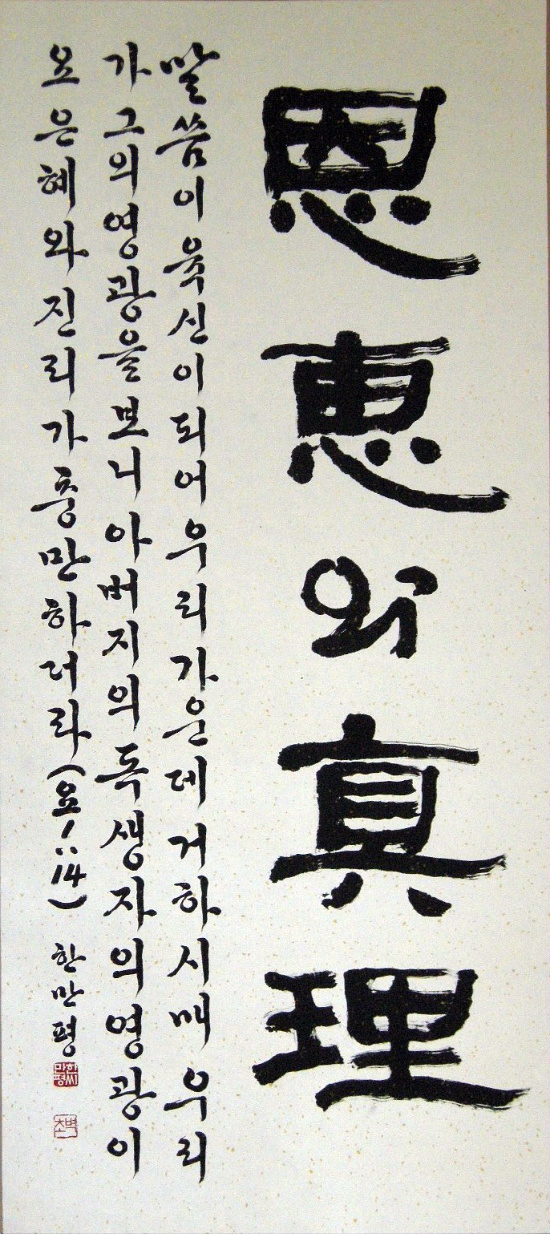 恩恵와真理
말씀이육신이되어우리가운데거하시매우리
가그의영광을보니아버지의독생자의영광이
요은혜와진리가충만하더라(요1:14)
한만평